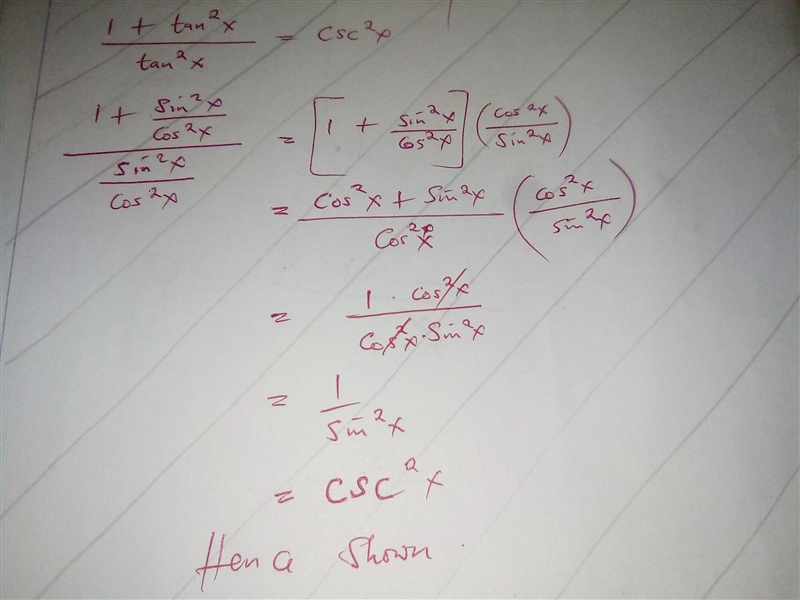 (1 + tan²x)/(tan²x) = csc²x
(1 + sin²x/cos²x)/(sin²x/cos²x) = [1 + sin²x/cos²x] (cos²x/sin²x)
= (cos²x + sin²x)/(cos²x) (cos²x/sin²x)
= (1 · cos²x)/(cos²x · sin²x)
= 1/sin²x
= csc²x
Hence shown.